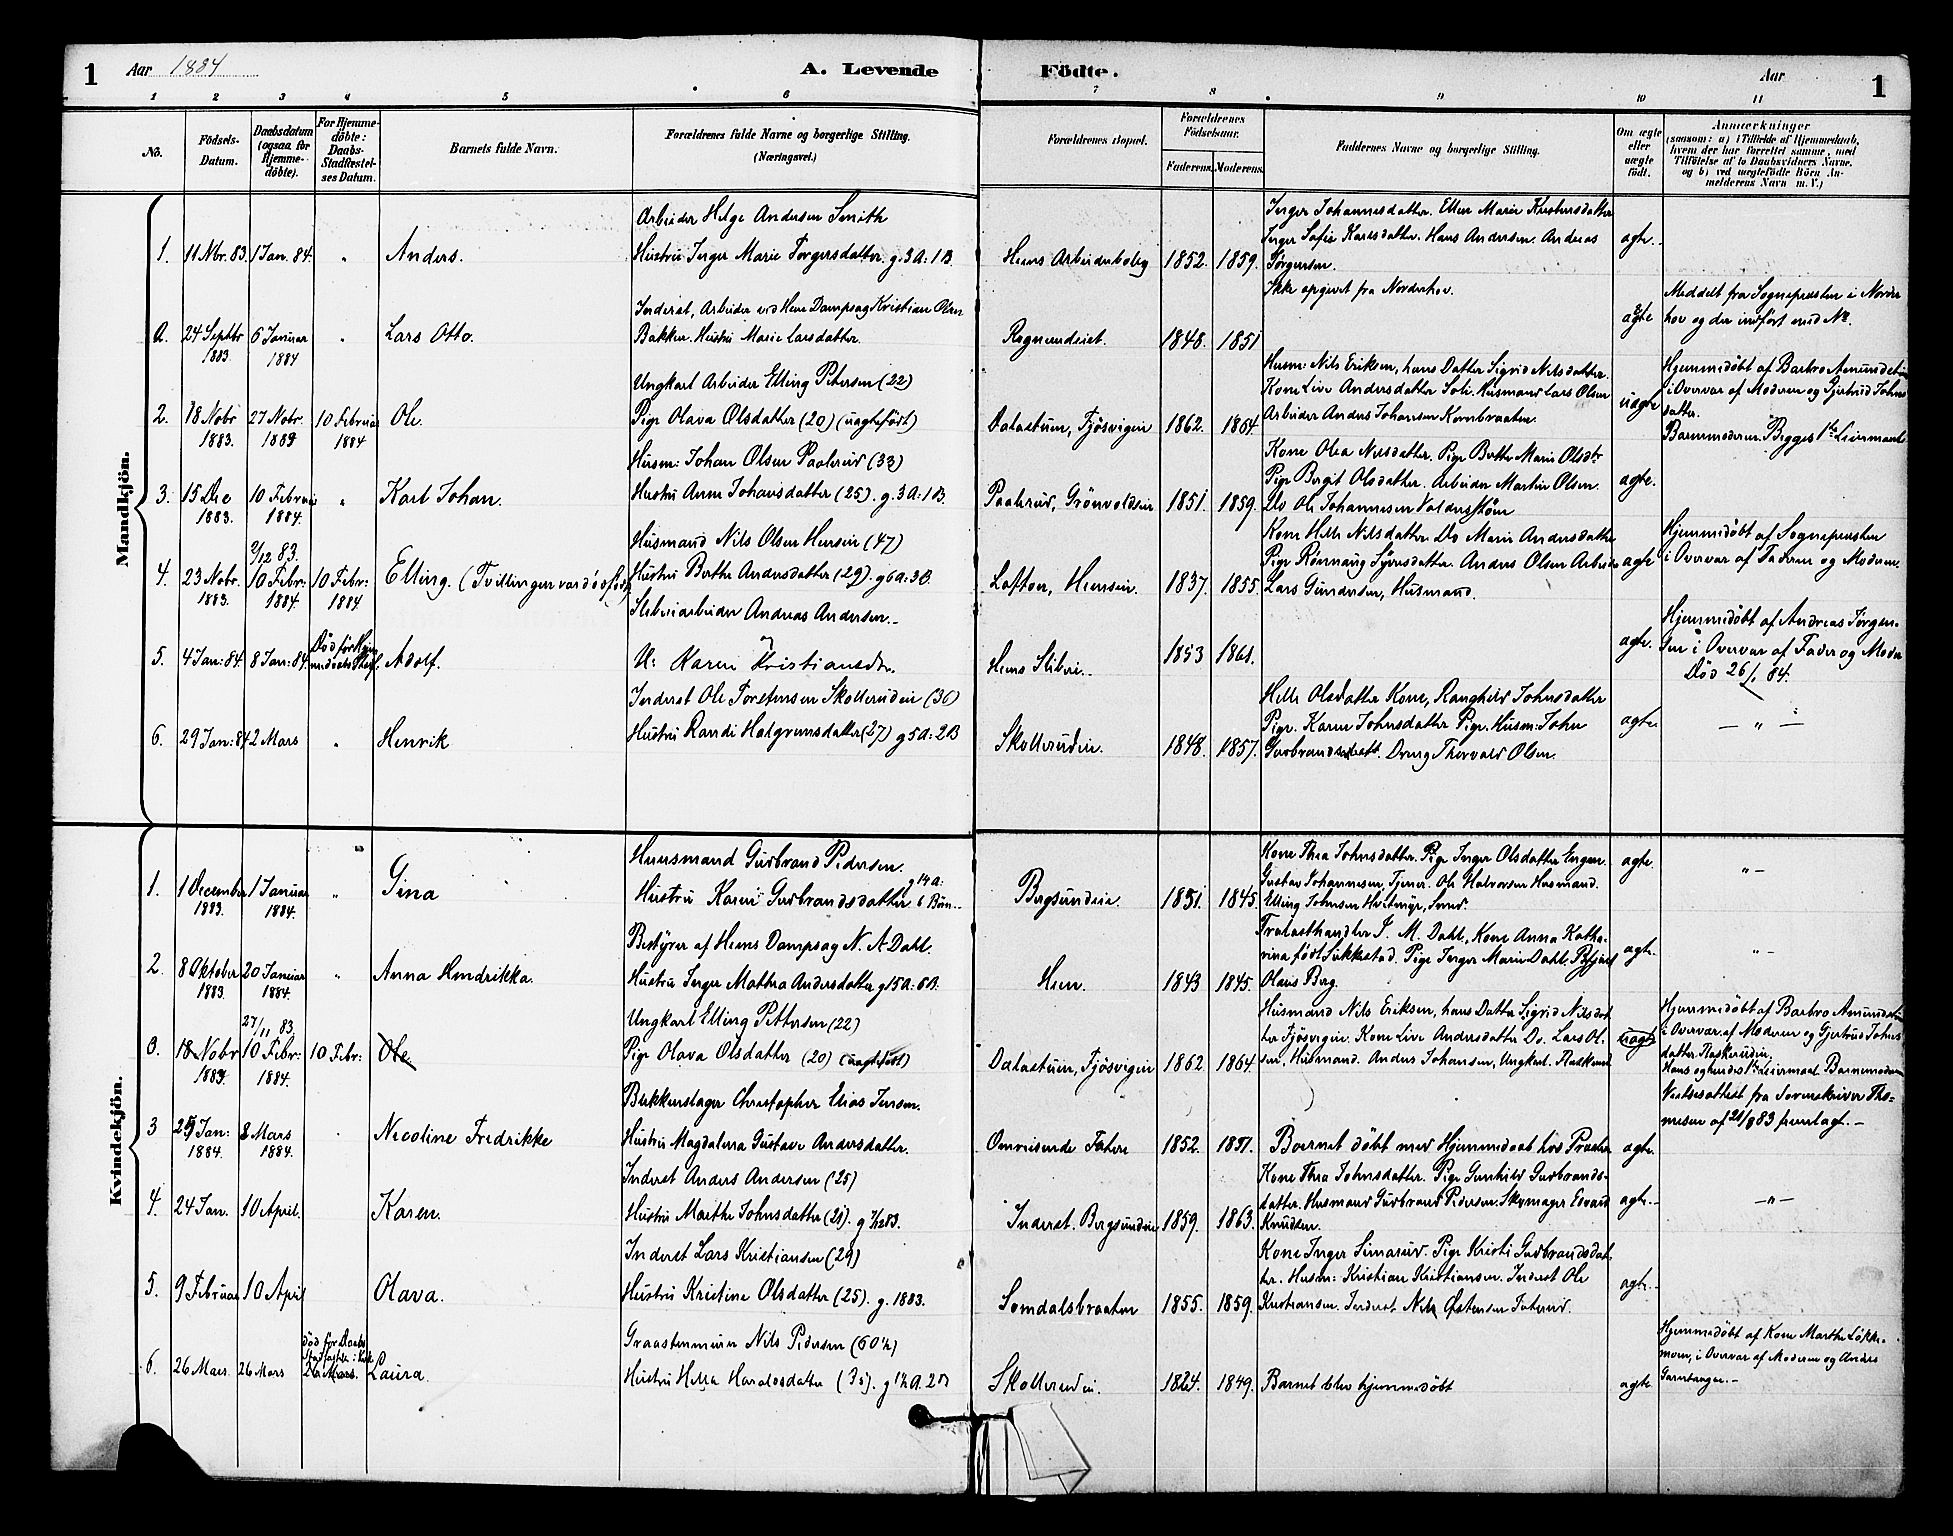 1
Aar 1884
A. Levende
Födte.
Aar
1
1 2 3 4 5 6 7 8 9 10 11
No.
Födsels-
Datum.
Daabsdatum
(ogsaa for
Hjemme-
döbte).
For Hjemme-
döbte:
Daabs-
Stadfæstel-
ses Datum.
Barnets fulde Navn.
Forældrenes fulde Navne og borgerlige Stilling.
(Næringsvei.)
Forældrenes Bopæl.
Forældrenes
Födselsaar.
Faderens. Moderens.
Faddernes Navne og borgerlige Stilling.
Om ægte
eller
uægte
födt.
Anmærkninger
(saasom: a) i Tilfælde af Hjemmedaab,
hvem der har forrettet samme, med
Tilföielse af to Daabsvidners Navne.
og b) ved uægtefödte Börn An-
melderens Navn m. V.)
Mandkjön.
1. 11 Nbr. 83. 1 Jan. 84. " Anders.
Arbeider Helge Andersen Smith
Hustru Inger Marie Torgersdatter. g. 3 A: 1 B.
Hens Arbeiderbolig 1852. 1859.
Inger Johannesdatter. Ellen Marie
Inger Sofie Karlsdatter. Hans Andersen. Andreas
Jörgensen.
ægte.
a. 24 Septbr 1883 6 Januar 1884 " Lars Otto.
Inderst, Arbeider ved Hens Dampsag Kristian Olsen
Bakken. Hustru Marie Larsdatter.
1848. 1851
Ikke opgivet fra Norderhov.
ægte
Meddelt fra Sognepresten i Norder
hov og der indført med No.
2. 18 Nobr 1883. 27 Nobr. 1883 10 Februar 1884 Ole.
Ungkarl Arbeider Elling Petersen (22)
Pige Olava Olsdatter (20) (uægteført)
Dalastuen, Tjösvigen 1862. 1864.
Husm: Nils Eriksen, hans Datter Sigrid Nilsdatter.
Kone Live Andersdatter Husmand Lars Olsen
Arbeider Anders Johansen
uægte
Hjemmedöbt af Barbro Amundsdatter
i Overvær af Moderen og Gjertrud Johns
datter.
Barnemoderen. Begges 1ste Leiermaal.
3. 15 Dec 1883. 10 Februar 1884. " Karl Johan.
Husm: Johan Olsen Paalerud (33)
Hustru Anne Johansdatter (25). g. 3 A: 1 B.
Paalerud, 1851. 1859.
Kone Olea Nilsdatter. Pige Berthe Marie Olsdtr
Pige Birgit Olsdatter. Arbeider Martin Olsen.
Do Ole Johannesen
ægte.
4. 23 Nobr. 1883. 2/12 83. 10 Febr: 1884. 10 Febr: 1884 Elling. (Tvillingen var dödfödt)
Husmand Nils Olsen Hensen (47)
Hustru Berthe Andersdatter (29). g 6 A: 3 B.
Loften, Hensen. 1837. 1855.
Kone Helle Nilsdatter Do Marie Andersdatter
Pige Rönnaug Andres Olsen Arbeider
Lars Gundersen, Husmand.
ægte
Hjemmedöbt af Sognepresten
i Overvær af Faderen og Moderen.
5. 4 Jan: 84. 8 Jan: 84. Död för Hjem- Adolf.
Sliberiarbeider Andreas Andersen.
H: Karen Kristiansdtr.
Hens Sliberi. 1853 1861.
ægte.
Hjemmedöbt af Andreas Jörgen-
sen i Overvær af Fader og Moder
Död 26/1 84.
6. 29 Jan: 84 2 Mars " Henrik
Inderst Ole Torstensen Skollerudeie (36)
Hustru Randi Halgrimsdatter (27) g 5 A: 2 B
Skollerudeie. 1848. 1857.
Helle Olsdatter Kone, Ranghild Johnsdatter
Pige. Karen Johnsdatter Pige. Husm: John
Dreng Thorvald Olsen.
ægte.
— " —
Kvindekjön.
1. 1 December 1883. 1 Januar 1884. " Gina
Huusmand Gudbrand Pedersen.
Hustru Karen Gudbrandsdatter g 14 A: 6 Börn.
Bergsundeie. 1851. 1845.
Kone Thea Johnsdatter. Pige Inger Olsdatter
Gustav Johannesen, Tjener. Ole Halvorsen Husmand.
Elling Johnsen Smed.
ægte
"—
2. 8 Oktober 1883. 20 Januar 1884. " Anna Hendrikka.
Bestyrer af Hens Dampsag N. A Dahl.
Hustru Inger Mathea Andersdatter g 15 A: 6 B.
Hen. 1843 1845.
Trælasthandler J. M. Dahl, Kone Anna Katha-
rina födt Pige Inger Marie Dahl.
Olaus Berg.
ægte.
"—
3. 18 Nobr 1883. 27/11 83. 10 Febr: 1884. 10 Febr: Ole
Ungkarl Elling Pettersen (22)
Pige Olava Olsdatter (20) (uægtefödt)
Dalastuen, Tjösvigen 1862 1864.
Husmand Nils Eriksen, hans Datter Sigrid Nilsdat
ter Tjösvigen. Kone Live Andersdatter Do. Lars Ol-
sen, Husmand. Anders Johansen, Ungkarl.
uægte
Hjemmedöbt af Barbro Amundsdtr
i Overvær af Moderen og Gjertrud Johns
datter Flaskerudeie.
Hans og hendes 1ste Leiermaal. Barnemoderen
3 25 Jan: 1884. 8 Mars 1884. Nicoline Fredrikke
Bukkerslager Christopher Elias Jensen.
Hustru Magdalena Gustave Andersdatter.
Omreisende Fatere 1852. 1851.
Barnet döbt med Hjemmedaab hos
ægte.
Vielsesattest fra Sorenskriver Tho-
mesen af 21/8 83 fremlagt. —
4. 24 Jan. 10 April. Karen.
Inderst Anders Andersen (25)
Hustru Marthe Johnsdatter (21). g
Inderst. Bergsundeie 1859. 1863.
Kone Thea Johnsdatter. Pige Gunhild Gudbrands-
datter. Husmand Gudbrand Pedersen. Skomager Edvard
Knudsen.
ægte.
—"—
5. 9 Februar 10 April Olava.
Inderst Lars Kristiansen (29)
Hustru Kristine Olsdatter (25). g. 1883.
Somdalsbraaten 1855. 1859.
Kone Inger Simarud. Pige Kristi Gudbrandsdat
ter. Husm: Kristian Kristiansen. Inderst Ole
Kristiansen. Inderst Nils Östensen
ægte.
6. 26 Mars. 26 Mars död för Daabs 26 Mars. Laura.
Graastensmurer Nils Pedersen (60½)
Hustru Helga Haraldsdatter (35). g 1½ A. 2 B
Skollerudeie. 1824. 1849.
Barnet blev hjemmedöbt
ægte
Hjemmedöbt af Kone Marthe Løkke-
moen, i Overvær af Moderen og Anders